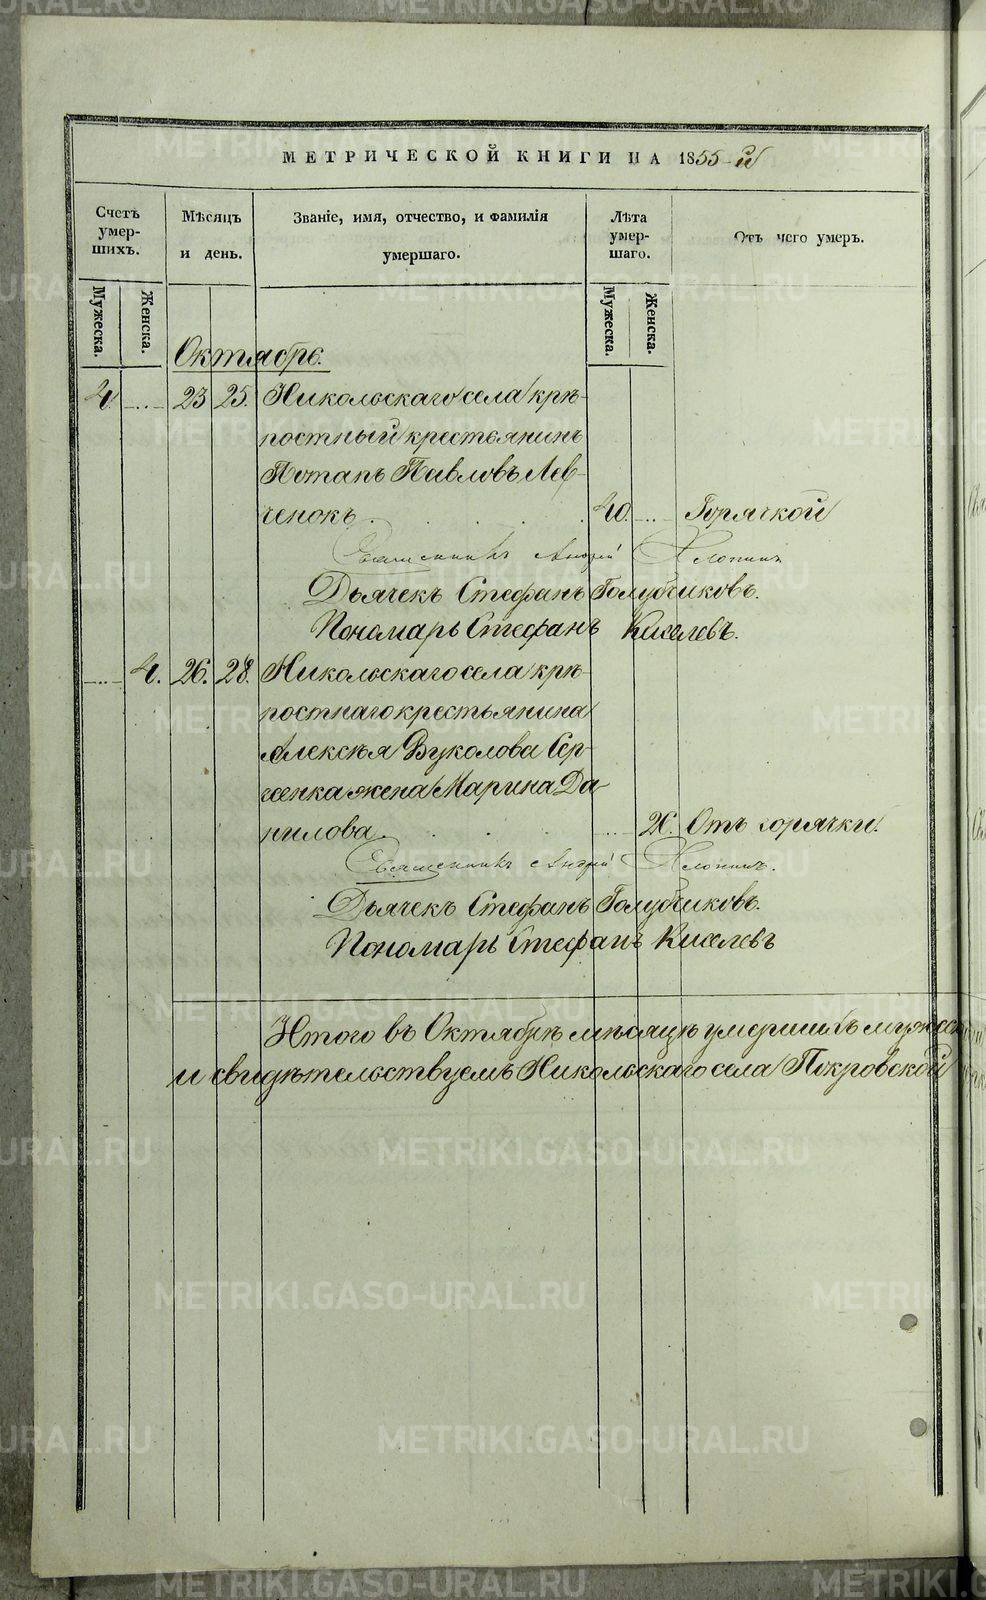 МЕТРИЧЕСКОЙ КНИГИ НА 1855-й
Счетъ умер-шихъ.
Мѣсяцъ и день.
Званіе, имя, отчество, и фамилія умершаго.
Лѣта умер-шаго.
Отъ чего умеръ.
Мужеска.
Женска.
Мужеска.
Женска.
Октябре.
4. 23 25. Никольскаго села крѣ-
постный крестьянинъ
Потапъ Павловъ Лев-
ченокъ. 40. Горячкой
Священникъ Андрей Хлопинъ
Дьячекъ Стефанъ Голубчиковъ.
Пономарь Стефанъ Киселевъ.
4. 26. 28. Никольскаго села крѣ-
постнаго крестьянина
Алексѣя Вуколова Сер-
женка жена Марина Да-
нилова. 26. Отъ горячки.
Священникъ Андрей Хлопинъ.
Дьячекъ Стефанъ Голубчиковъ.
Пономарь Стефанъ Киселевъ
Итого въ Октябрѣ мѣсяцѣ умершихъ мужеск
и свидѣтельствуемъ Никольскаго села Покровской
METRIKI.GASO-URAL.RU